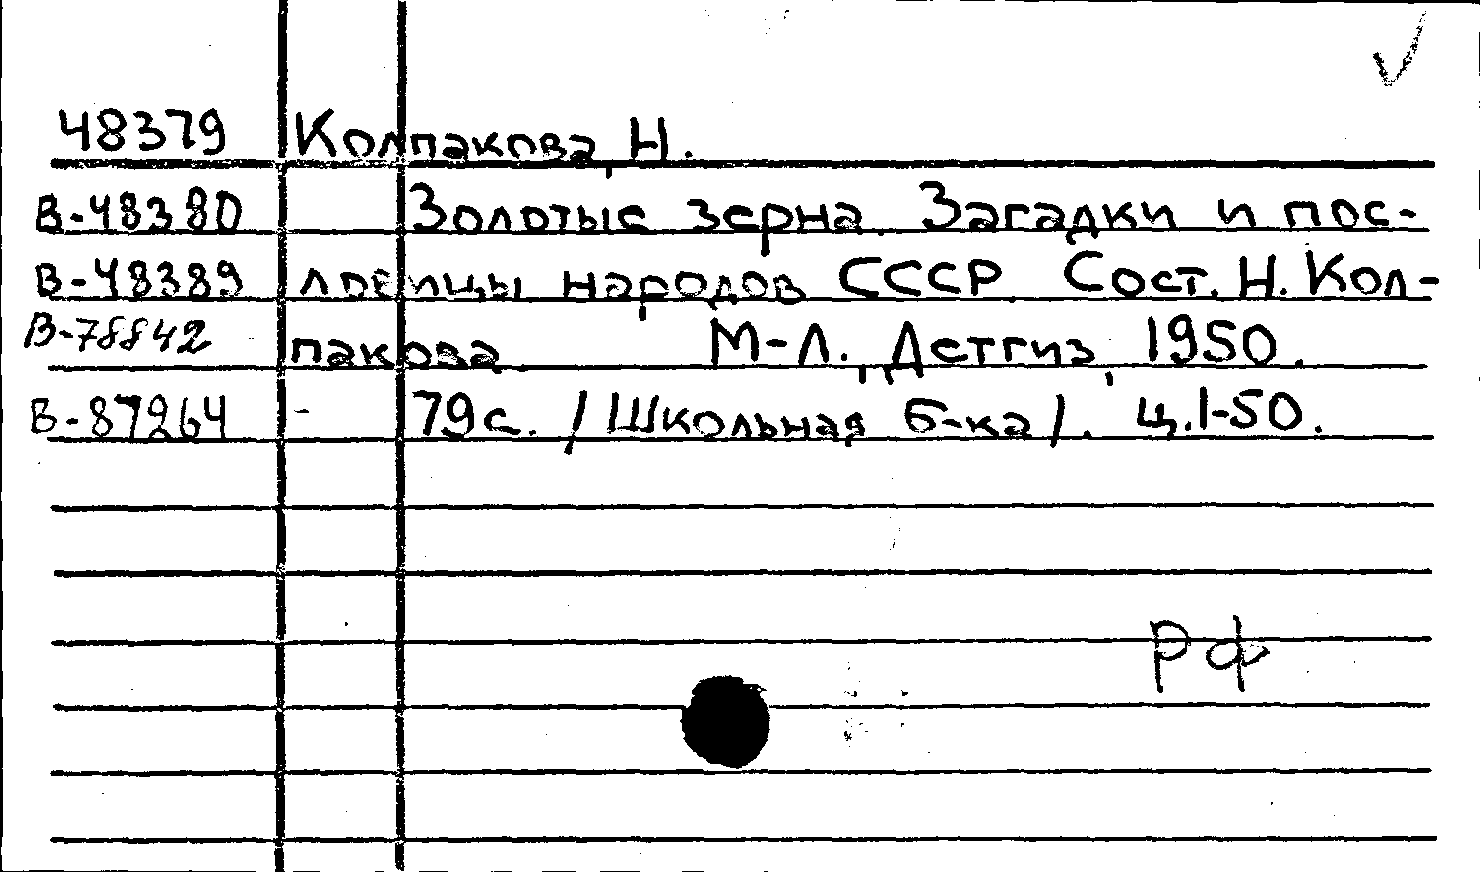 48379 Колпакова, Н.
В-48380 Золотые зерна. Загадки и пос-
В-48389 ловицы народов СССР. Сост. Н. Кол-
В-78842 пакова М-Л., Детгиз, 1950.
В-87264 - 79с. /Школьная б-ка/. Ц.1-50.
РФ